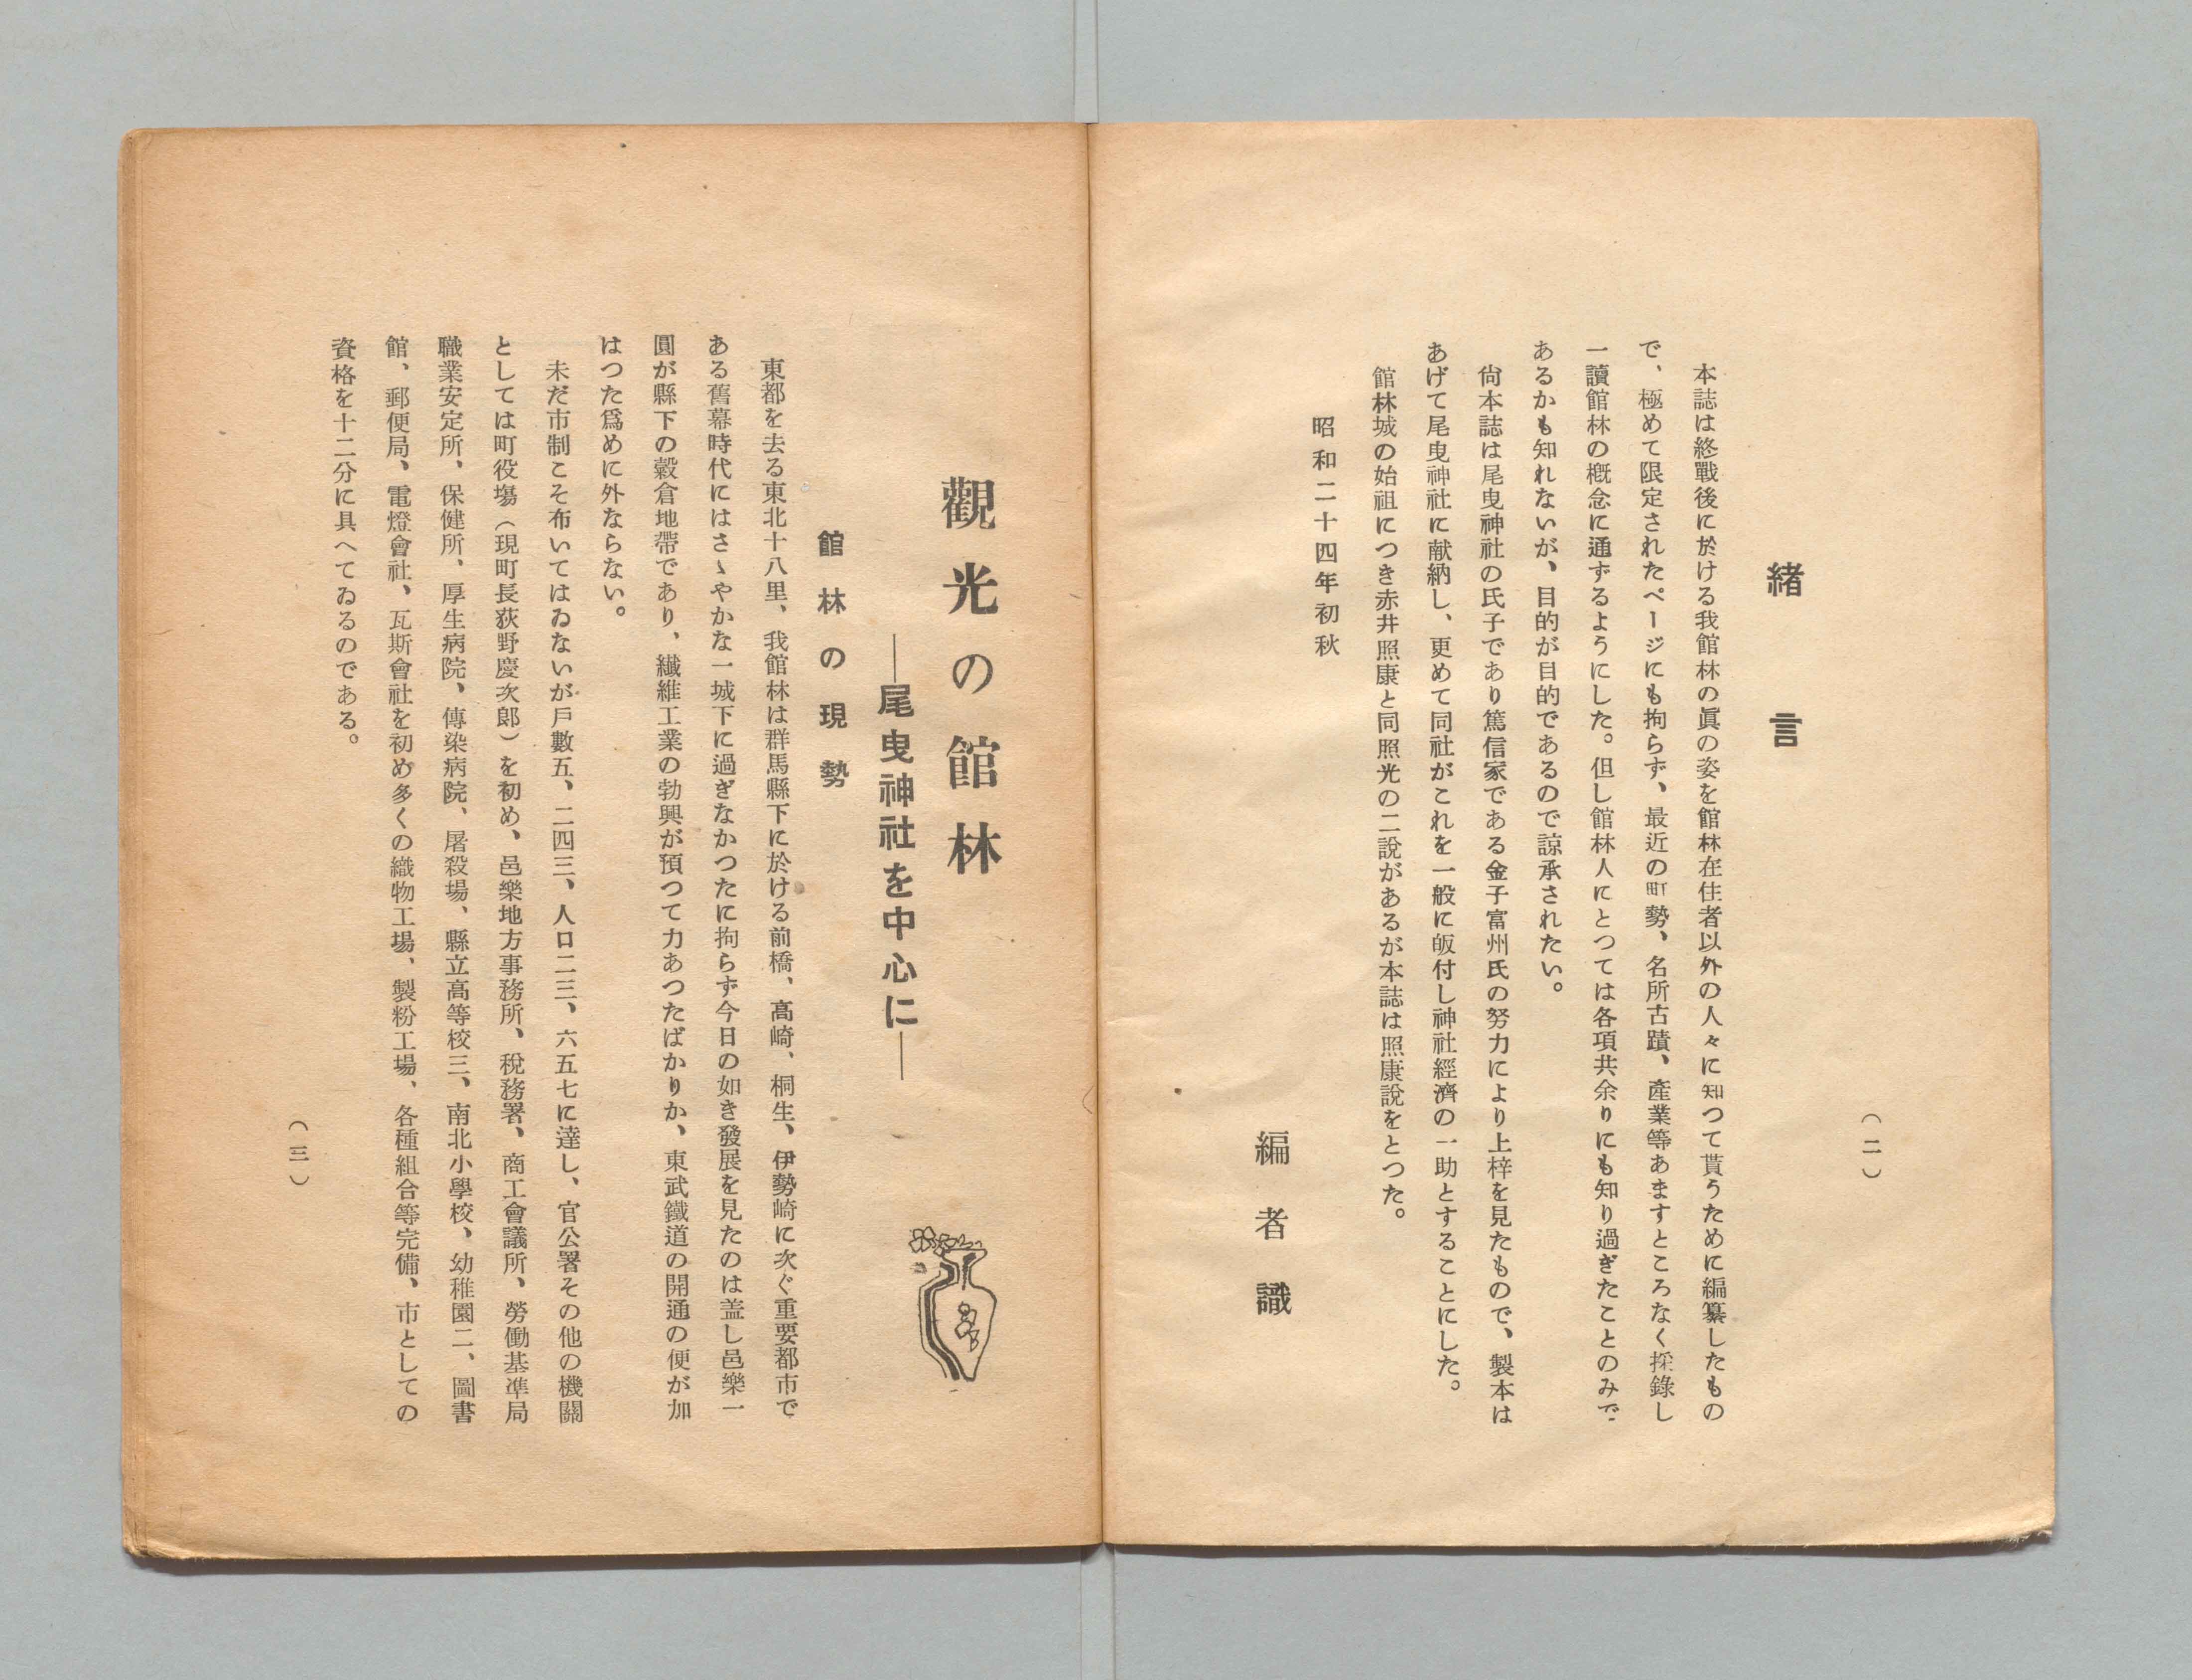 （二）
緒言
本誌は終戰後に於ける我館林の眞の姿を館林在住者以外の人々に知つて貰うために編纂したもの
で、極めて限定されたページにも拘らず、最近の町勢、名所古蹟、產業等あますところなく採錄し
一讀館林の概念に通ずるようにした。但し館林人にとつては各項共余りにも知り過ぎたことのみで
あるかも知れないが、目的が目的であるので諒承されたい。
尙本誌は尾曳神社の氏子であり篤信家である金子富州氏の努力により上梓を見たもので、製本は
あげて尾曳神社に献納し、更めて同社がこれを一般に皈付し神社經濟の一助とすることにした。
館林城の始祖につき赤井照康と同照光の二說があるが本誌は照康說をとつた。
昭和二十四年初秋
編者識
觀光の館林
―尾曳神社を中心に―
館林の現勢
東都を去る東北十八里、我館林は群馬縣下に於ける前橋、高崎、桐生、伊勢崎に次ぐ重要都市で
ある舊幕時代にはさゝやかな一城下に過ぎなかつたに拘らず今日の如き發展を見たのは盖し邑樂一
圓が縣下の穀倉地帶であり、纖維工業の勃興が預つて力あつたばかりか、東武鐵道の開通の便が加
はつた爲めに外ならない。
未だ市制こそ布いてはゐないが戶數五、二四三、人口二三、六五七に達し、官公署その他の機關
としては町役塲（現町長荻野慶次郞）を初め、邑樂地方事務所、稅務署、商工會議所、勞働基準局
職業安定所、保健所、厚生病院、傳染病院、屠殺場、縣立高等校三、南北小學校、幼稚園二、圖書
館、郵便局、電燈會社、瓦斯會社を初め多くの織物工場、製粉工場、各種組合等完備、市としての
資格を十二分に具へてゐるのである。
（三）